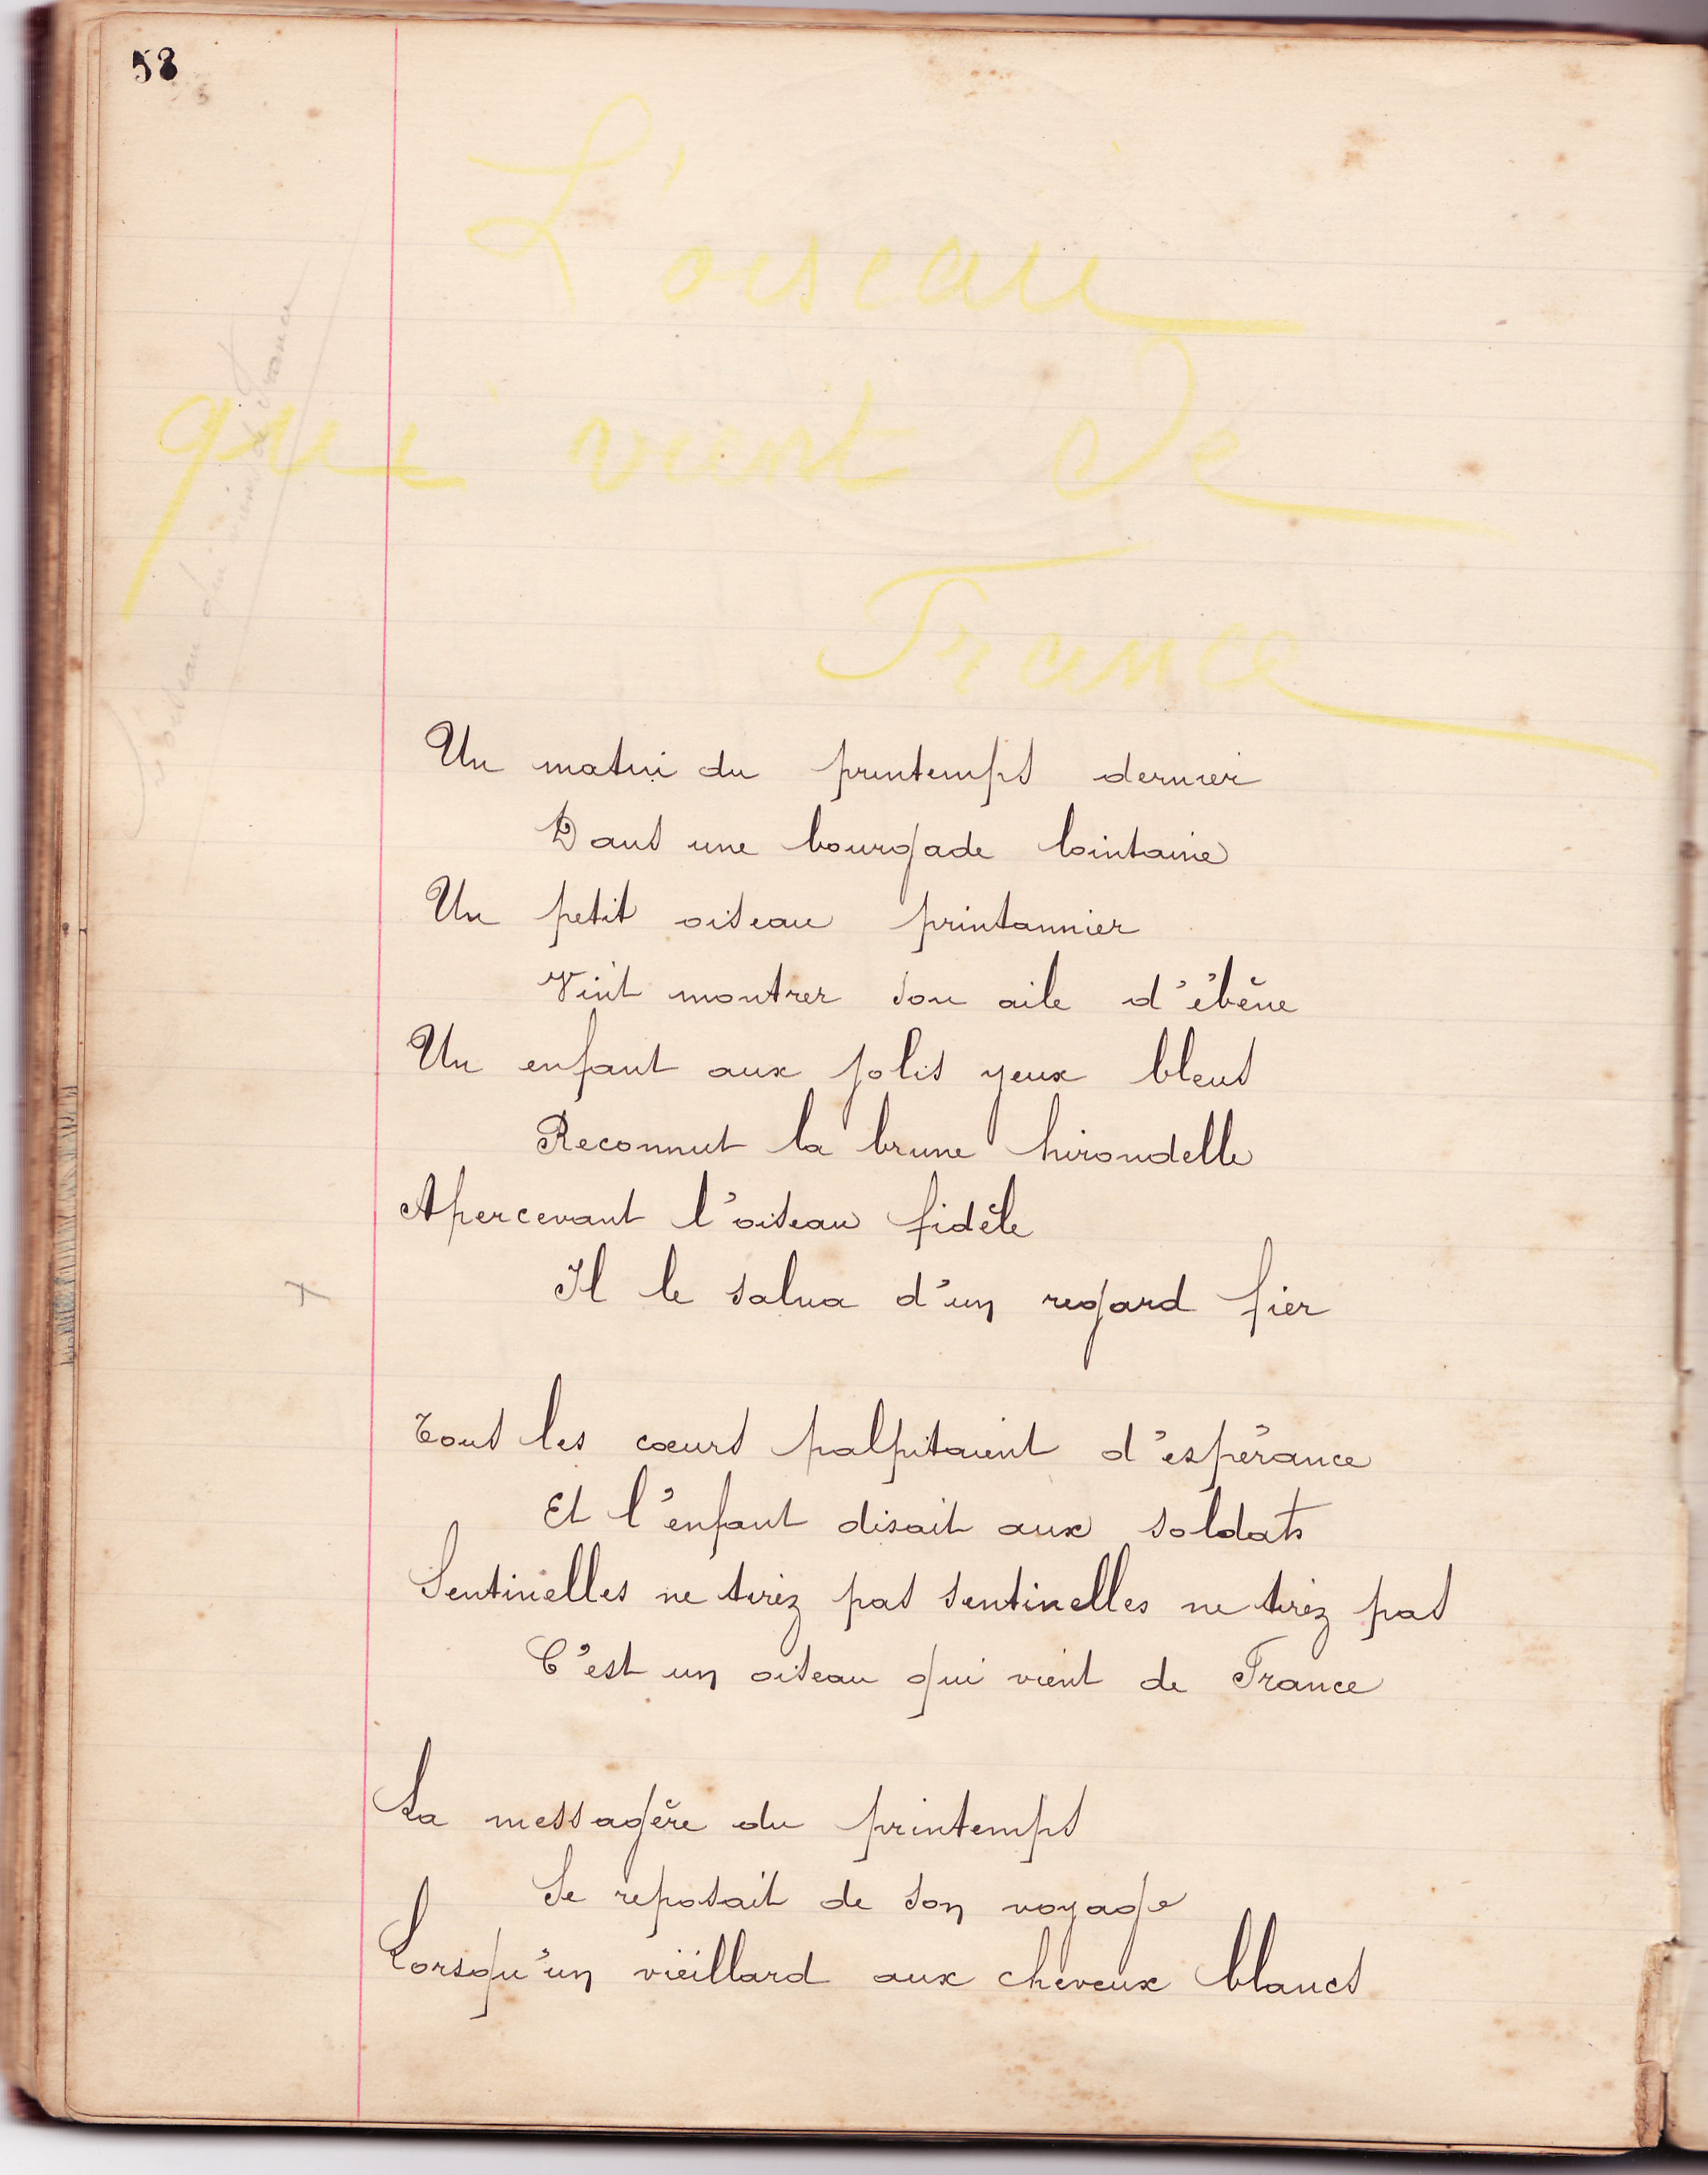 58
L'oiseau
qui vient de
France
L'oiseau qui vient de France
Un matin du printemps dernier
Dans une bourgade lointaine
Un petit oiseau printannier
Vint montrer son aile d'ébène
Un enfant aux jolis yeux bleus
Reconnut la brune hirondelle
Apercevant l'oiseau fidèle
Il le salua d'un regard fier
Tous les cœurs palpitaient d'espérance
Et l'enfant disait aux soldats
Sentinelles ne tirez pas sentinelles ne tirez pas
C'est un oiseau qui vient de France
La messagère du printemps
Se reposait de son voyage
Lorsqu'un vieillard aux cheveux blancs